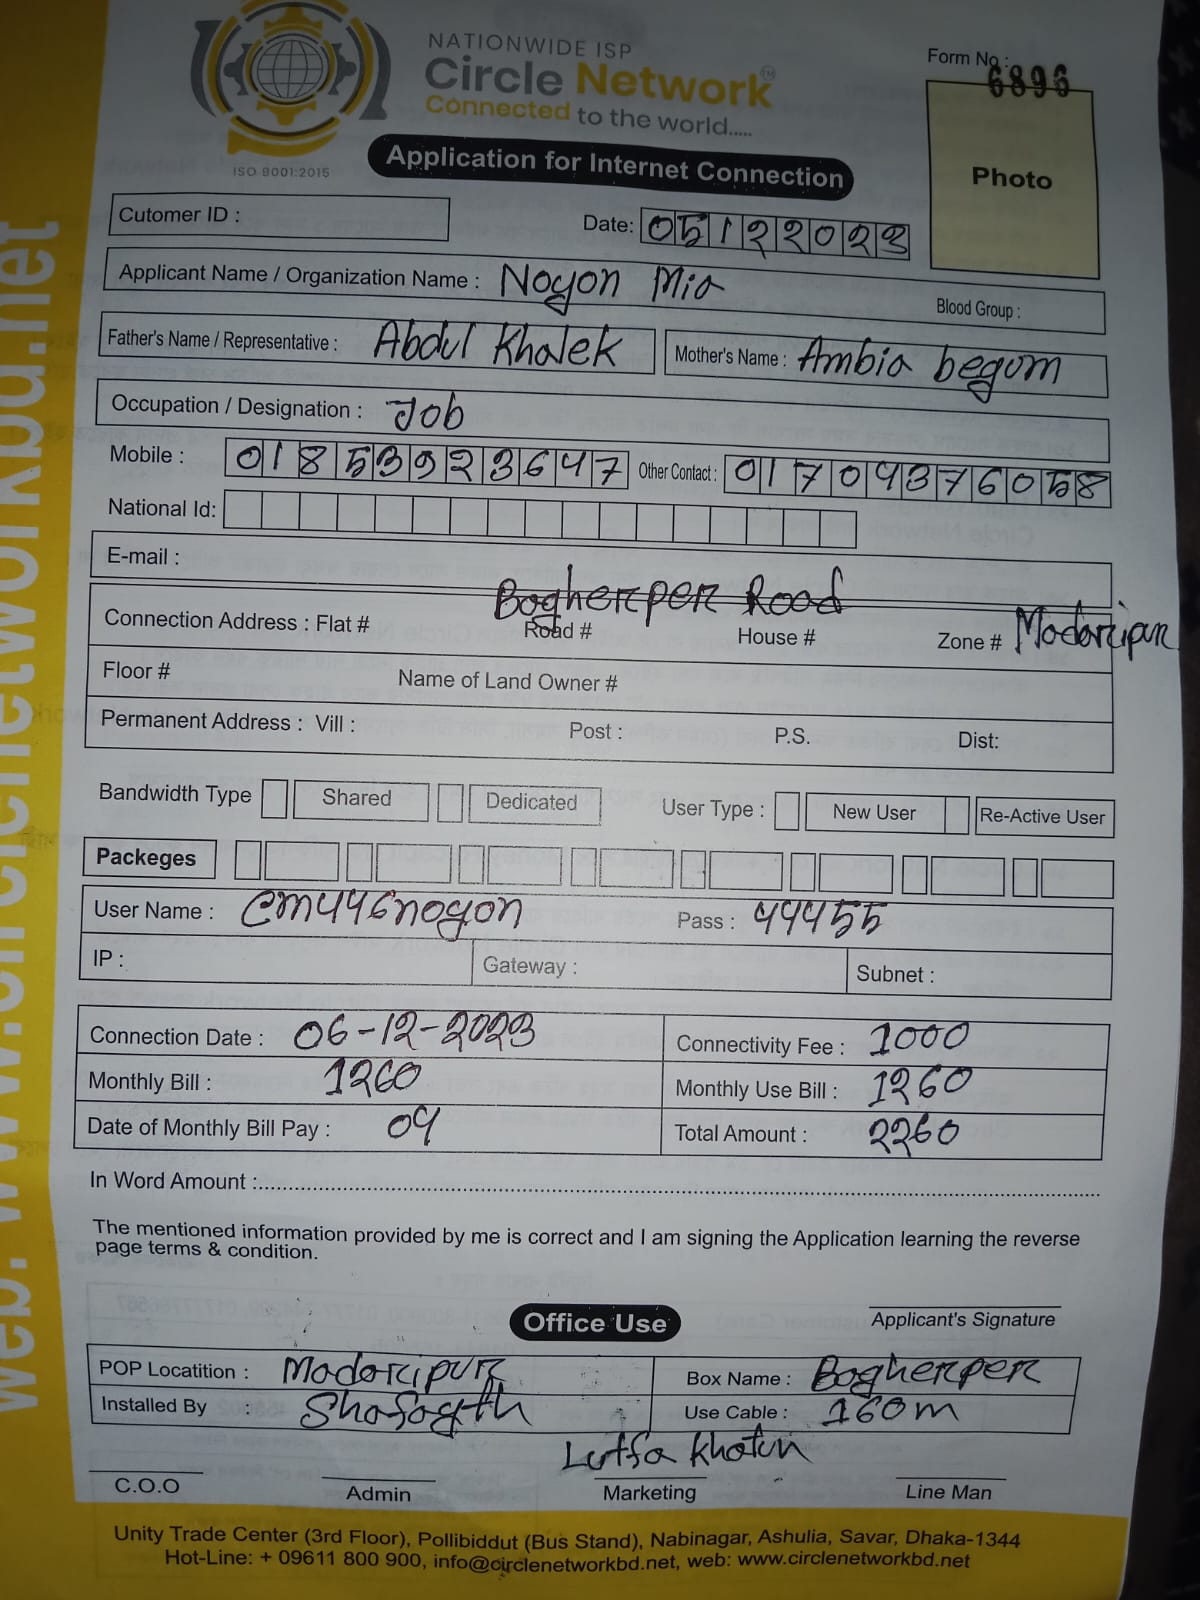 NATIONWIDE ISP
Circle Network™
Connected to the world.....
ISO 9001:2015
Form No.: 6896
Photo
Application for Internet Connection
Cutomer ID :
Date: 05122023
Applicant Name / Organization Name : Noyon Mia Blood Group :
Father's Name / Representative : Abdul Khalek Mother's Name : Ambia begum
Occupation / Designation : Job
Mobile : 01853923647 Other Contact : 01704376058
National Id:
E-mail :
Connection Address : Flat # Bogherper Road Road # House # Zone # Madaripur
Floor # Name of Land Owner #
Permanent Address : Vill : Post : P.S. Dist:
Bandwidth Type Shared Dedicated User Type : New User Re-Active User
Packeges
User Name : cm446noyon Pass : 44455
IP : Gateway : Subnet :
Connection Date : 06-12-2023 Connectivity Fee : 1000
Monthly Bill : 1260 Monthly Use Bill : 1260
Date of Monthly Bill Pay : 04 Total Amount : 2260
In Word Amount :
The mentioned information provided by me is correct and I am signing the Application learning the reverse
page terms & condition.
Applicant's Signature
Office Use
POP Locatition : Madaripur Box Name : Bogherper
Installed By : Use Cable : 160m
Lutfa Khatun
C.O.O Admin Marketing Line Man
Unity Trade Center (3rd Floor), Pollibiddut (Bus Stand), Nabinagar, Ashulia, Savar, Dhaka-1344
Hot-Line: + 09611 800 900, info@circlenetworkbd.net, web: www.circlenetworkbd.net
web: www.circlenetworkbd.net